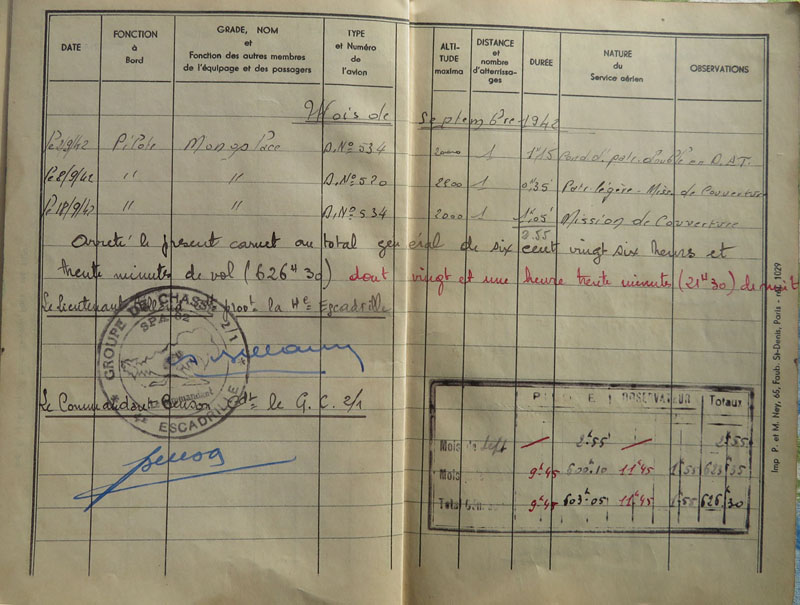 DATE
FONCTION à Bord
GRADE, NOM et Fonction des autres membres de l'équipage et des passagers
TYPE et Numéro de l'avion
ALTITUDE maxima
DISTANCE et nombre d'atterrissages
DURÉE
NATURE du Service aérien
OBSERVATIONS
Mois de Septembre 1942
Le 2/9/42 Pilote Monoplace D.N°534 1 1h15 en D.A.T.
Le 8/9/42 " " D.N°520 2200 1 0h35' Patr légère - Miss. de Couverture
Le 18/9/42 " " D.N°534 2000 1 1h05' Mission de Couverture
2.55
Arrêté le présent carnet au total général de six cent vingt six heures et
trente minutes de vol (626H30) dont vingt et une heure trente minutes (21H30) de nuit
Le Lieutenant la Escadrille
GROUPE DE CHASSE 2/1
SPA. 62
ESCADRILLE
Le Commandant le G.C. 2/1
OBSERVATEUR Totaux
Mois de Sept 2h55' 2h55
Mois 9h45 600h10 11h45 1h55 623h35
Total Gén 9h45 603h05 11h45 1h55 626h30
Imp P. et M. Ney, 65, Faub. St-Denis, Paris - réf. 1029